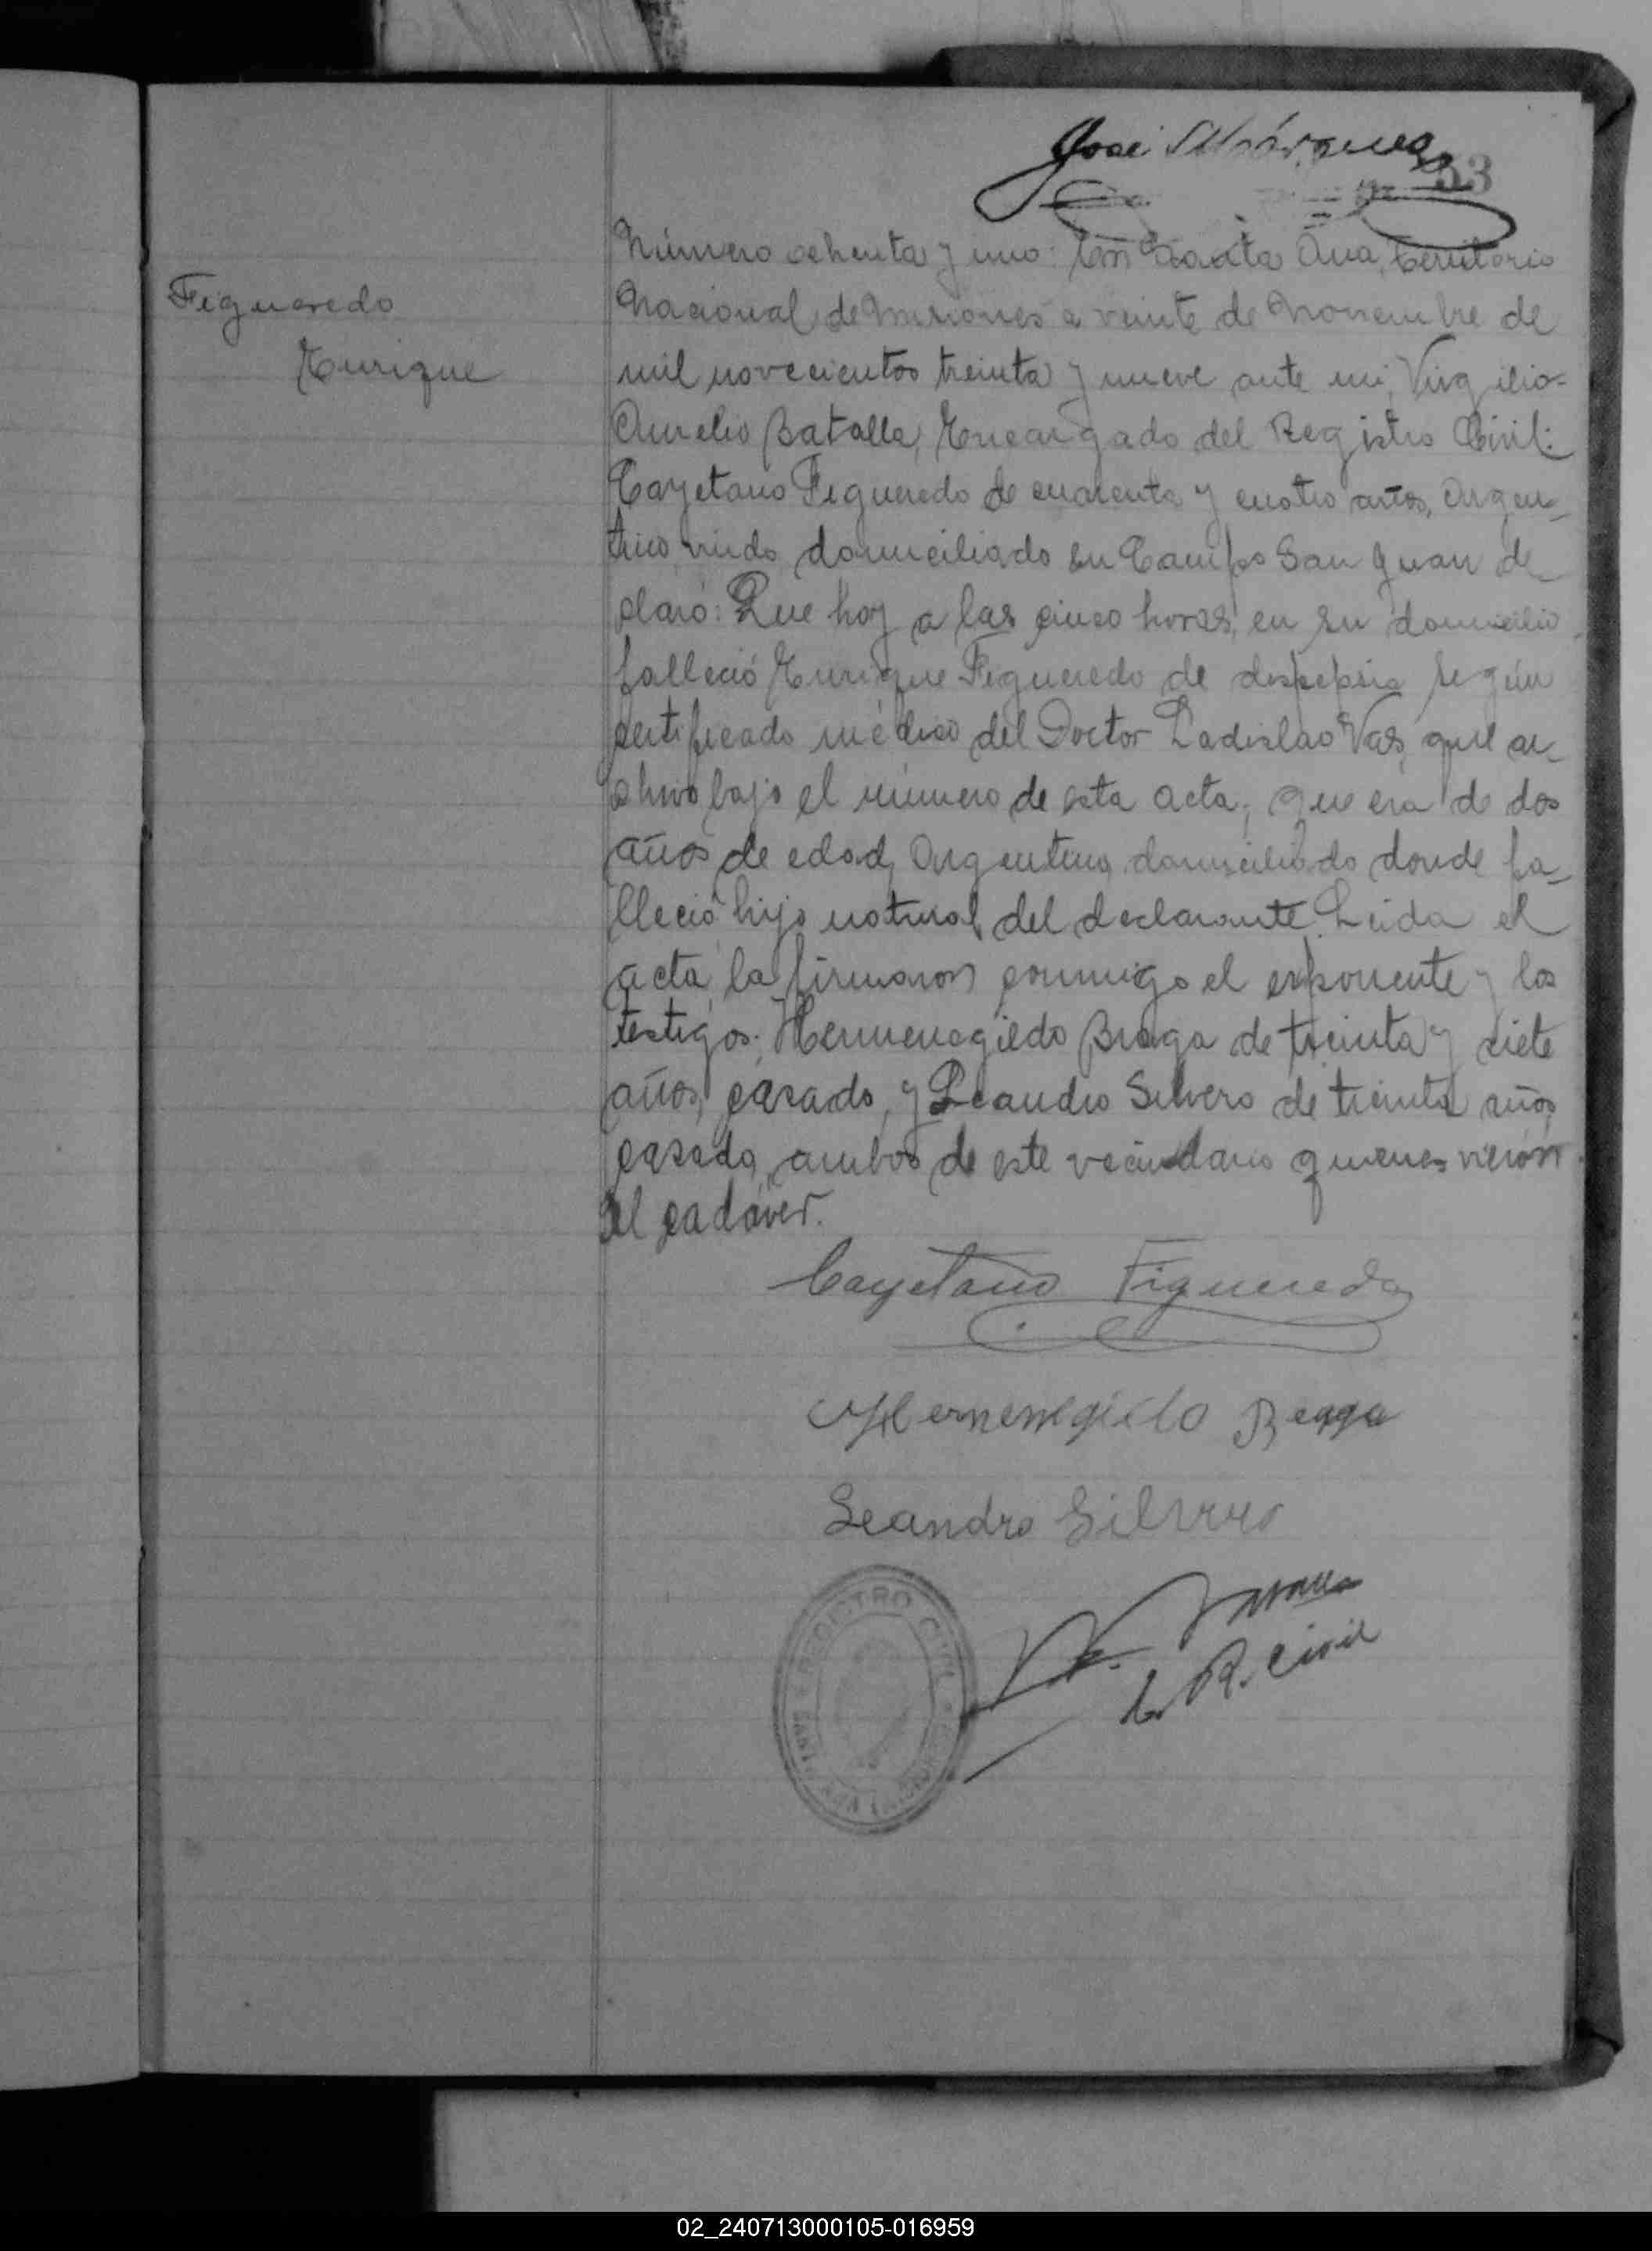 José Márquez
53
Número ochenta y uno: En Santa Ana, Territorio
Figueredo
Nacional de Misiones a veinte de Noviembre de
Enrique
mil novecientos treinta y nueve ante mi, Virgilio
Aurelio Batalla, Encargado del Registro Civil:
Cayetano Figueredo de cuarenta y cuatro años, Argen-
tino, viudo domiciliado en Campo San Juan de-
claró: Que hoy a las cinco horas, en su domicilio
falleció Enrique Figueredo de dispepsia según
certificado médico del Doctor Ladislao Vas, que ar-
chivo bajo el número de esta acta, que era de dos
años de edad, Argentino, domiciliado donde fa-
lleció hijo natural del declarante. Leida el
acta, la firmaron conmigo el exponente y los
testigos: Hermenegildo Braga de treinta y siete
años, casado, y Leandro Silvero de treinta años
casado, ambos de este vecindario quienes vieron
el cadáver.
Cayetano Figueredo
Hermenegildo Braga
Leandro Silvero
REGISTRO CIVIL
SANTA ANA
R. Civil
02_240713000105-016959